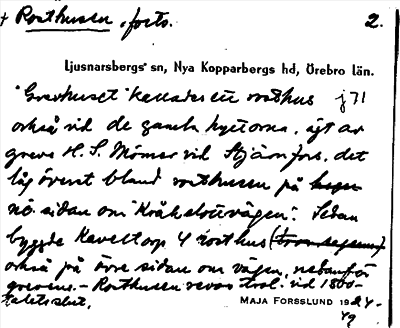 + Rosthusen, forts. 2.
Ljusnarsbergs sn, Nya Kopparbergs hd, Örebro län.
"Grevhuset" kallades ett rosthus j71
också vid de gamla hyttorna, ägt av
greve H. S. Mörner vid Stjärnfors. det
låg överst bland rosthusen på
nö. sidan om "Kråkslottsvägen". Sedan
byggde Kaveltorp 4 rosthus
också på övre sidan om vägen, nedanför
grevens. - Rosthusen revos trol. vid 1800-
talets slut. MAJA FORSSLUND 1924-
49